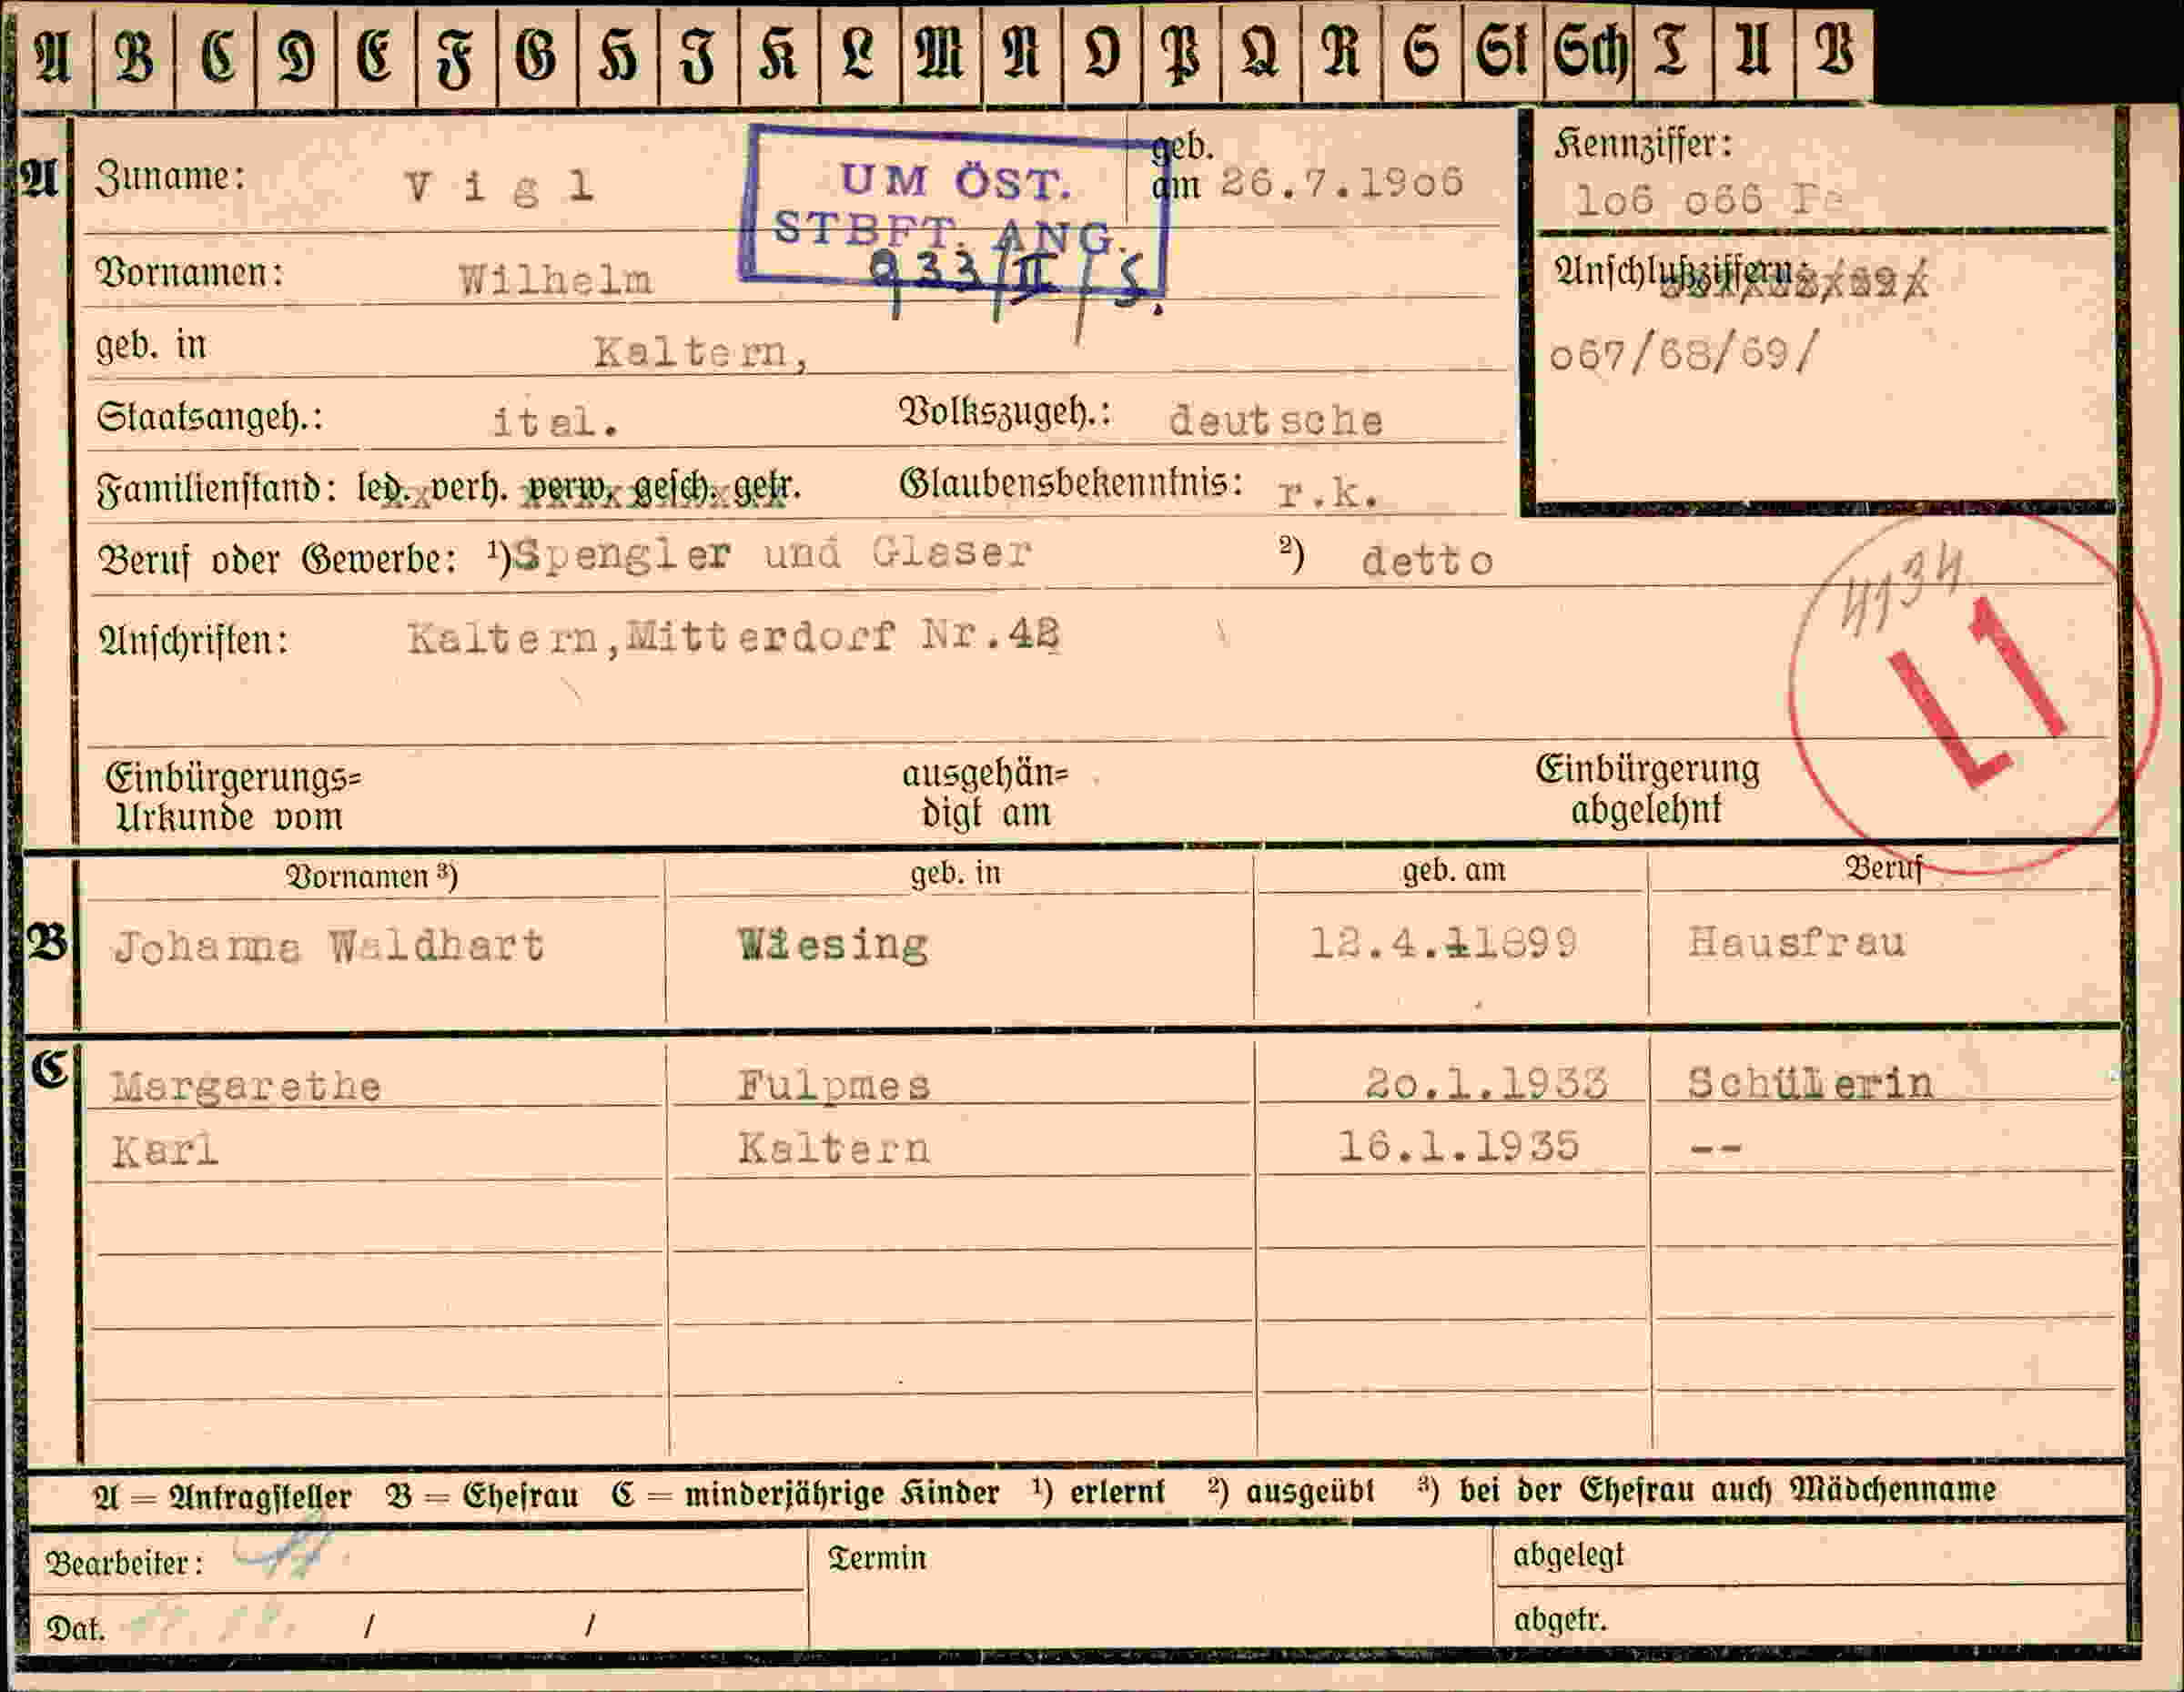 A B C D E F G H I K L M N O P Q R S St Sch T U V
A Zuname: Vigl geb. am 26.7.1906 Kennziffer:
UM ÖST. 106 066
STBFT. ANG.
933/II/5.
Vornamen: Wilhelm Anschlußziffern:
geb. in Kaltern, 067/68/69/
Staatsangeh.: ital. Volkszugeh.: deutsche
Familienstand: led. verh. verw. gesch. getr. Glaubensbekenntnis: r.k.
Beruf oder Gewerbe: ¹) Spengler und Glaser ²) detto
4134
L1
Anschriften: Kaltern, Mitterdorf Nr.42
Einbürgerungs= ausgehän= Einbürgerung
Urkunde vom digt am abgelehnt
Vornamen ³) geb. in geb. am Beruf
B Johanna Waldhart Wiesing 12.4.1899 Hausfrau
C Margarethe Fulpmes 20.1.1933 Schülerin
Karl Kaltern 16.1.1935 --
A = Antragsteller B = Ehefrau C = minderjährige Kinder ¹) erlernt ²) ausgeübt ³) bei der Ehefrau auch Mädchenname
Bearbeiter: Termin abgelegt
Dat. / / abgetr.